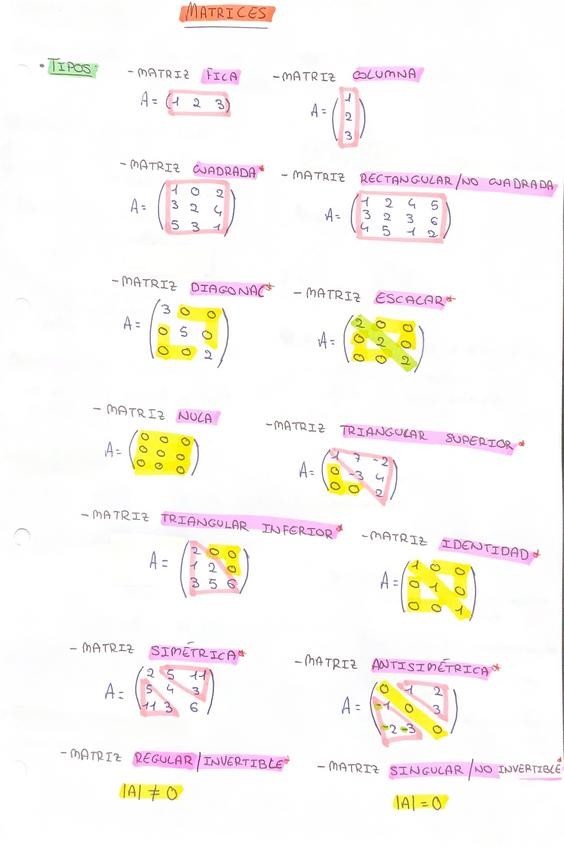 MATRICES
• TIPOS:
- MATRIZ FILA
A = (1 2 3)
- MATRIZ COLUMNA
A = (1
2
3)
- MATRIZ CUADRADA*
A = (1 0 2
3 2 4
5 3 1)
- MATRIZ RECTANGULAR/NO CUADRADA
A = (1 2 4 5
3 2 3 6
4 5 1 2)
- MATRIZ DIAGONAL*
A = (3 0 0
0 5 0
0 0 2)
- MATRIZ ESCALAR*
A = (2 0 0
0 2 0
0 0 2)
- MATRIZ NULA
A = (0 0 0
0 0 0
0 0 0)
- MATRIZ TRIANGULAR SUPERIOR*
A = (1 7 -2
0 -3 4
0 0 2)
- MATRIZ TRIANGULAR INFERIOR*
A = (2 0 0
1 2 0
3 5 6)
- MATRIZ IDENTIDAD*
A = (1 0 0
0 1 0
0 0 1)
- MATRIZ SIMÉTRICA*
A = (2 5 11
5 4 3
11 3 6)
- MATRIZ ANTISIMÉTRICA*
A = (0 1 2
-1 0 3
-2 -3 0)
- MATRIZ REGULAR/INVERTIBLE*
|A| ≠ 0
- MATRIZ SINGULAR/NO INVERTIBLE*
|A| = 0